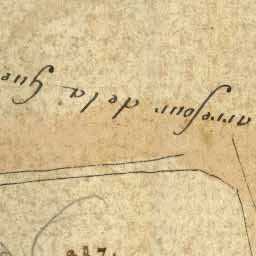 arrefour de la Gue